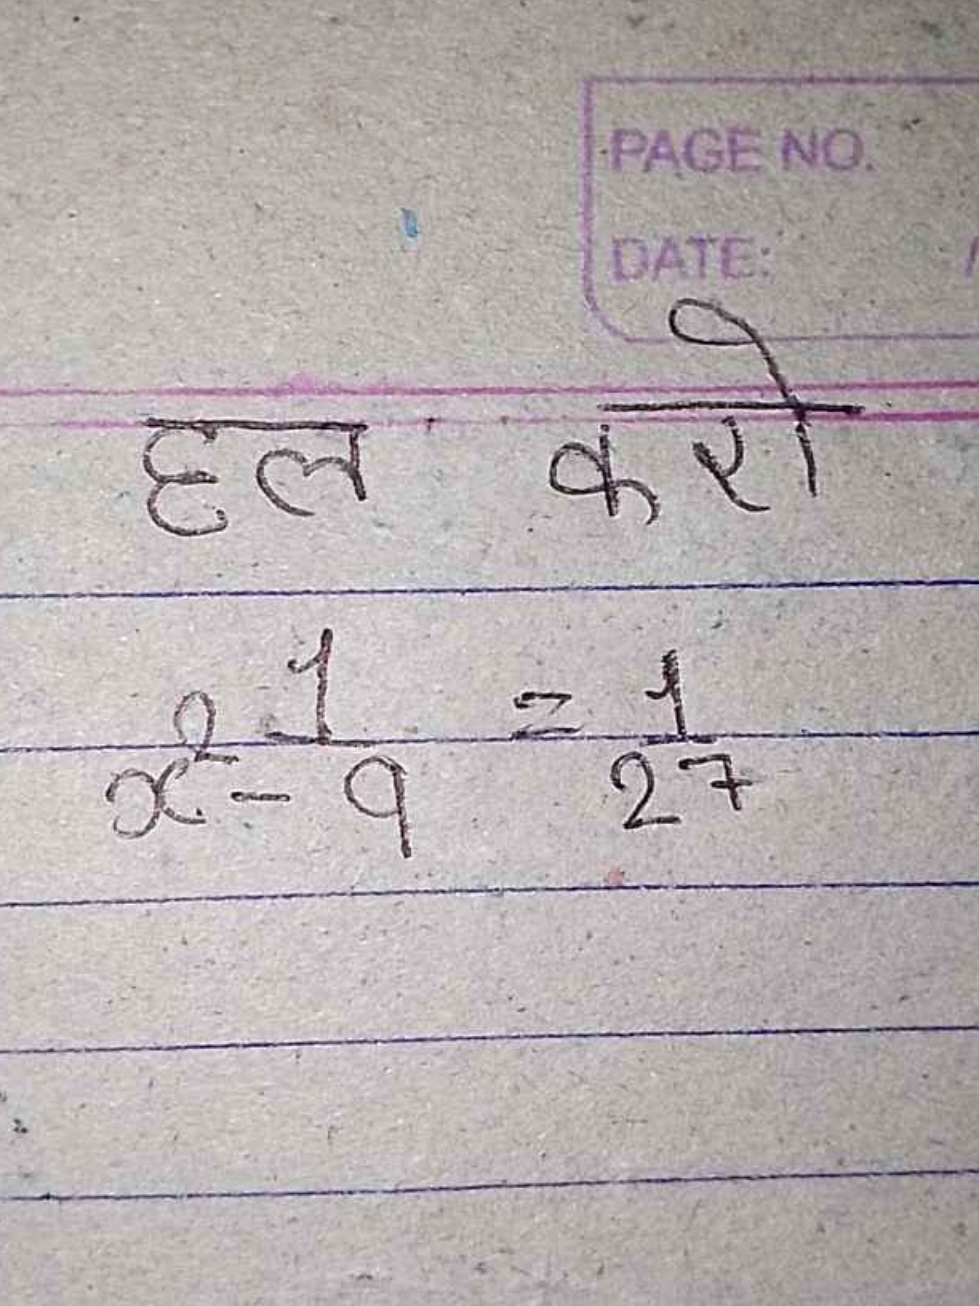 PAGE NO.
DATE: /
हल करो
1/x²-9 = 1/27